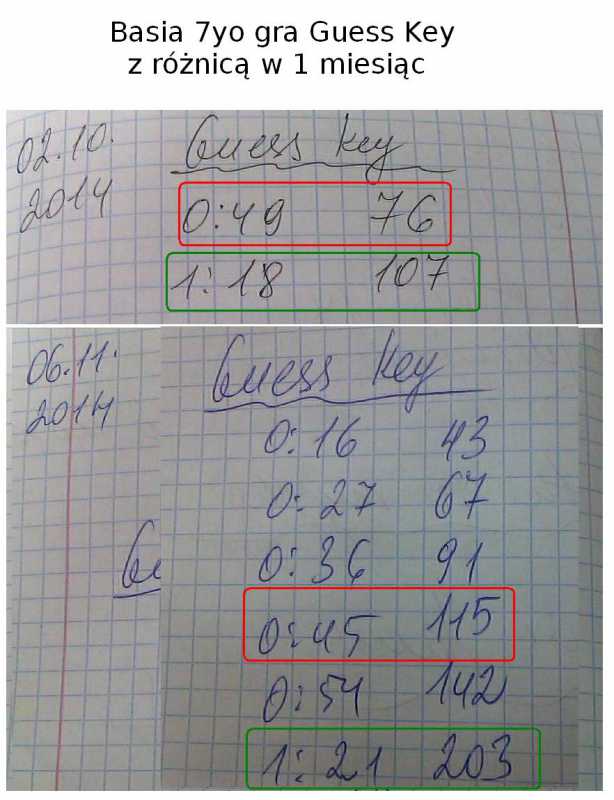 Basia 7yo gra Guess Key
z różnicą w 1 miesiąc
02.10.
2014
Guess key
0:49 76
1:18 107
06.11.
2014
Guess key
0:16 43
0:27 67
0:36 91
0:45 115
0:54 142
1:21 203